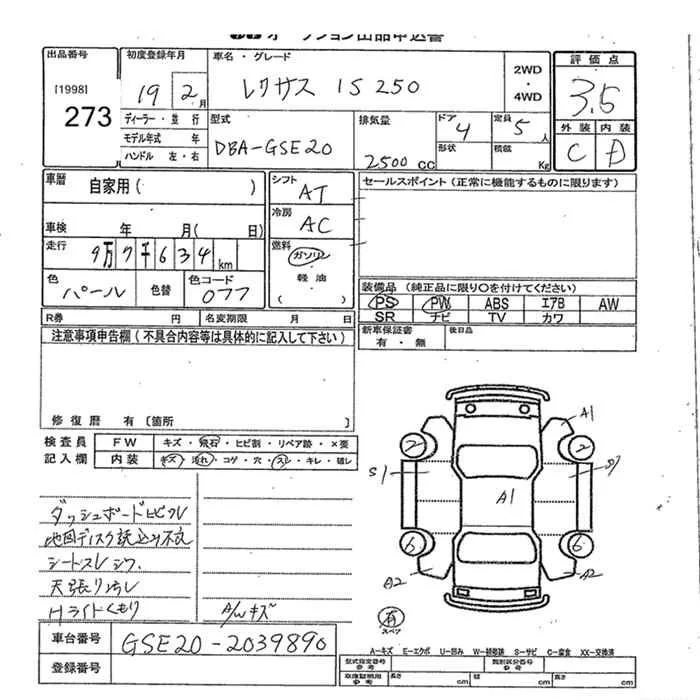 オークション出品申込書
出品番号
[1998]
273
初度登録年月
19 2月
車名・グレード
レクサス IS250
2WD
・
4WD
評価点
3.5
外装 内装
C D
ディーラー・並行
モデル年式 年
ハンドル 左・右
型式
DBA-GSE20
排気量
2500 CC
ドア
4
形状
定員
5人
積載
Kg
車暦
自家用( )
車検 年 月( 日)
走行
9万7千634km
色
パール
色替
色コード
077
シフト
AT
冷房
AC
燃料
ガソリン
・
軽油
( )
セールスポイント(正常に機能するものに限ります)
装備品(純正品に限り○を付けてください)
PS PW ABS エアB AW
SR ナビ TV カワ
新車保証書
有・無
後日品
R券 円 名変期限 月 日
注意事項申告欄(不具合内容等は具体的に記入して下さい)
修復歴 有〔箇所 〕
検査員
記入欄
FW キズ・飛石・ヒビ割・リペア跡・×要
内装 キズ・汚れ・コゲ・穴・スレ・キレ・破レ
ダッシュボードヒビワレ
地図ディスク読込み不良
シートスレ シワ
天張り汚レ
Hライトくもり
A/Wキズ
A1
2
2
S1
A1
6
6
A2
A2
有
スペア
車台番号 GSE20-2039890
登録番号
A-キズ E-エクボ U-凹み W-補修跡 S-サビ C-腐食 XX-交換済
型式指定番号
参考
類別区分番号
参考
車庫証明用
参考
長さ cm
幅 cm
高さ cm